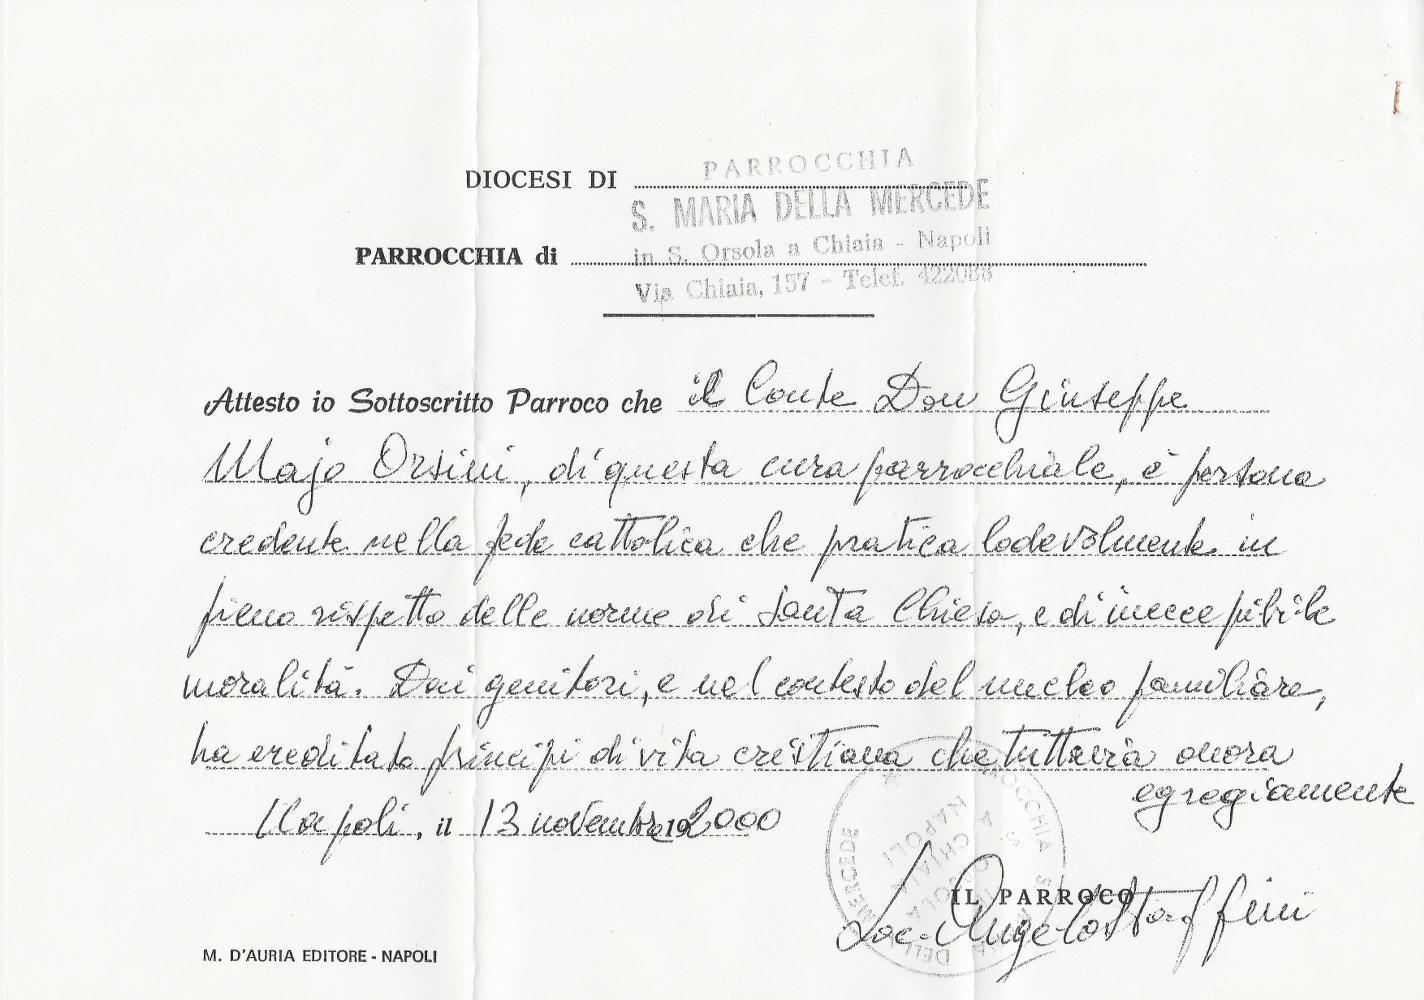 PARROCCHIA
DIOCESI DI
S. MARIA DELLA MERCEDE
in S. Orsola a Chiaia - Napoli
PARROCCHIA di
Via Chiaia, 157 - Telef. 422088
Attesto io Sottoscritto Parroco che il Conte Don Giuseppe
Majo Orsini, di questa cura parrocchiale, è persona
credente nella fede cattolica che pratica lodevolmente in
pieno rispetto delle norme di Santa Chiesa, e di ineccepibile
moralità. Dai genitori, e nel contesto del nucleo familiare,
ha ereditato principi di vita cristiana che tuttavia onora
egregiamente
Napoli, il 13 novembre 2000
IL PARROCO
Sac. Angelo Staffini
M. D'AURIA EDITORE - NAPOLI